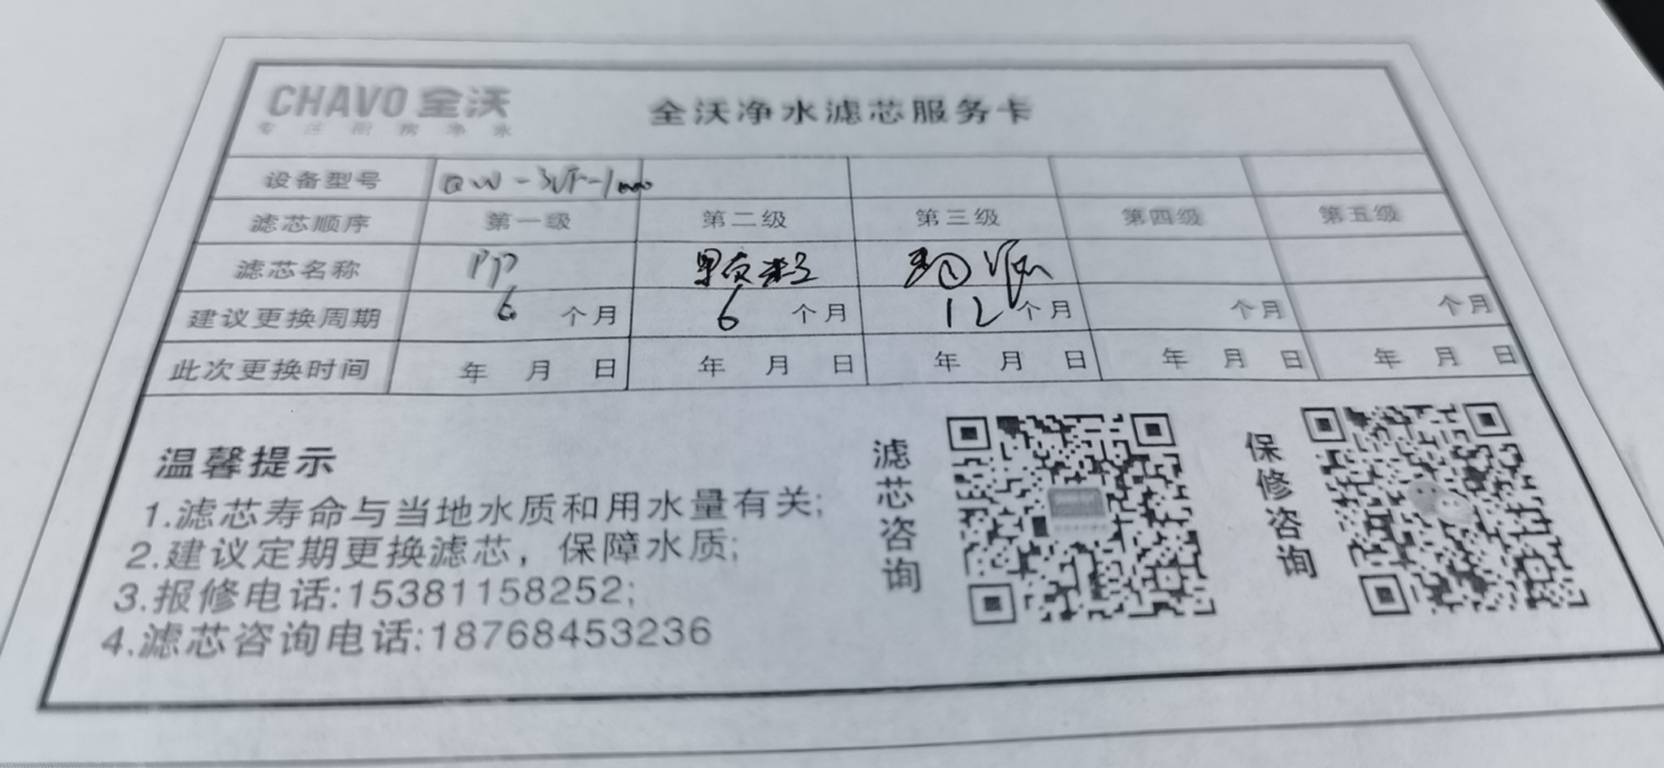 CHAVO 全沃
专注厨房净水
全沃净水滤芯服务卡
设备型号
滤芯顺序 第一级 第二级 第三级 第四级 第五级
滤芯名称 PP
建议更换周期 6 个月 6 个月 12 个月 个月 个月
此次更换时间 年 月 日 年 月 日 年 月 日 年 月 日 年 月 日
温馨提示
1.滤芯寿命与当地水质和用水量有关;
2.建议定期更换滤芯，保障水质;
3.报修电话:15381158252;
4.滤芯咨询电话:18768453236
滤芯咨询
保修咨询